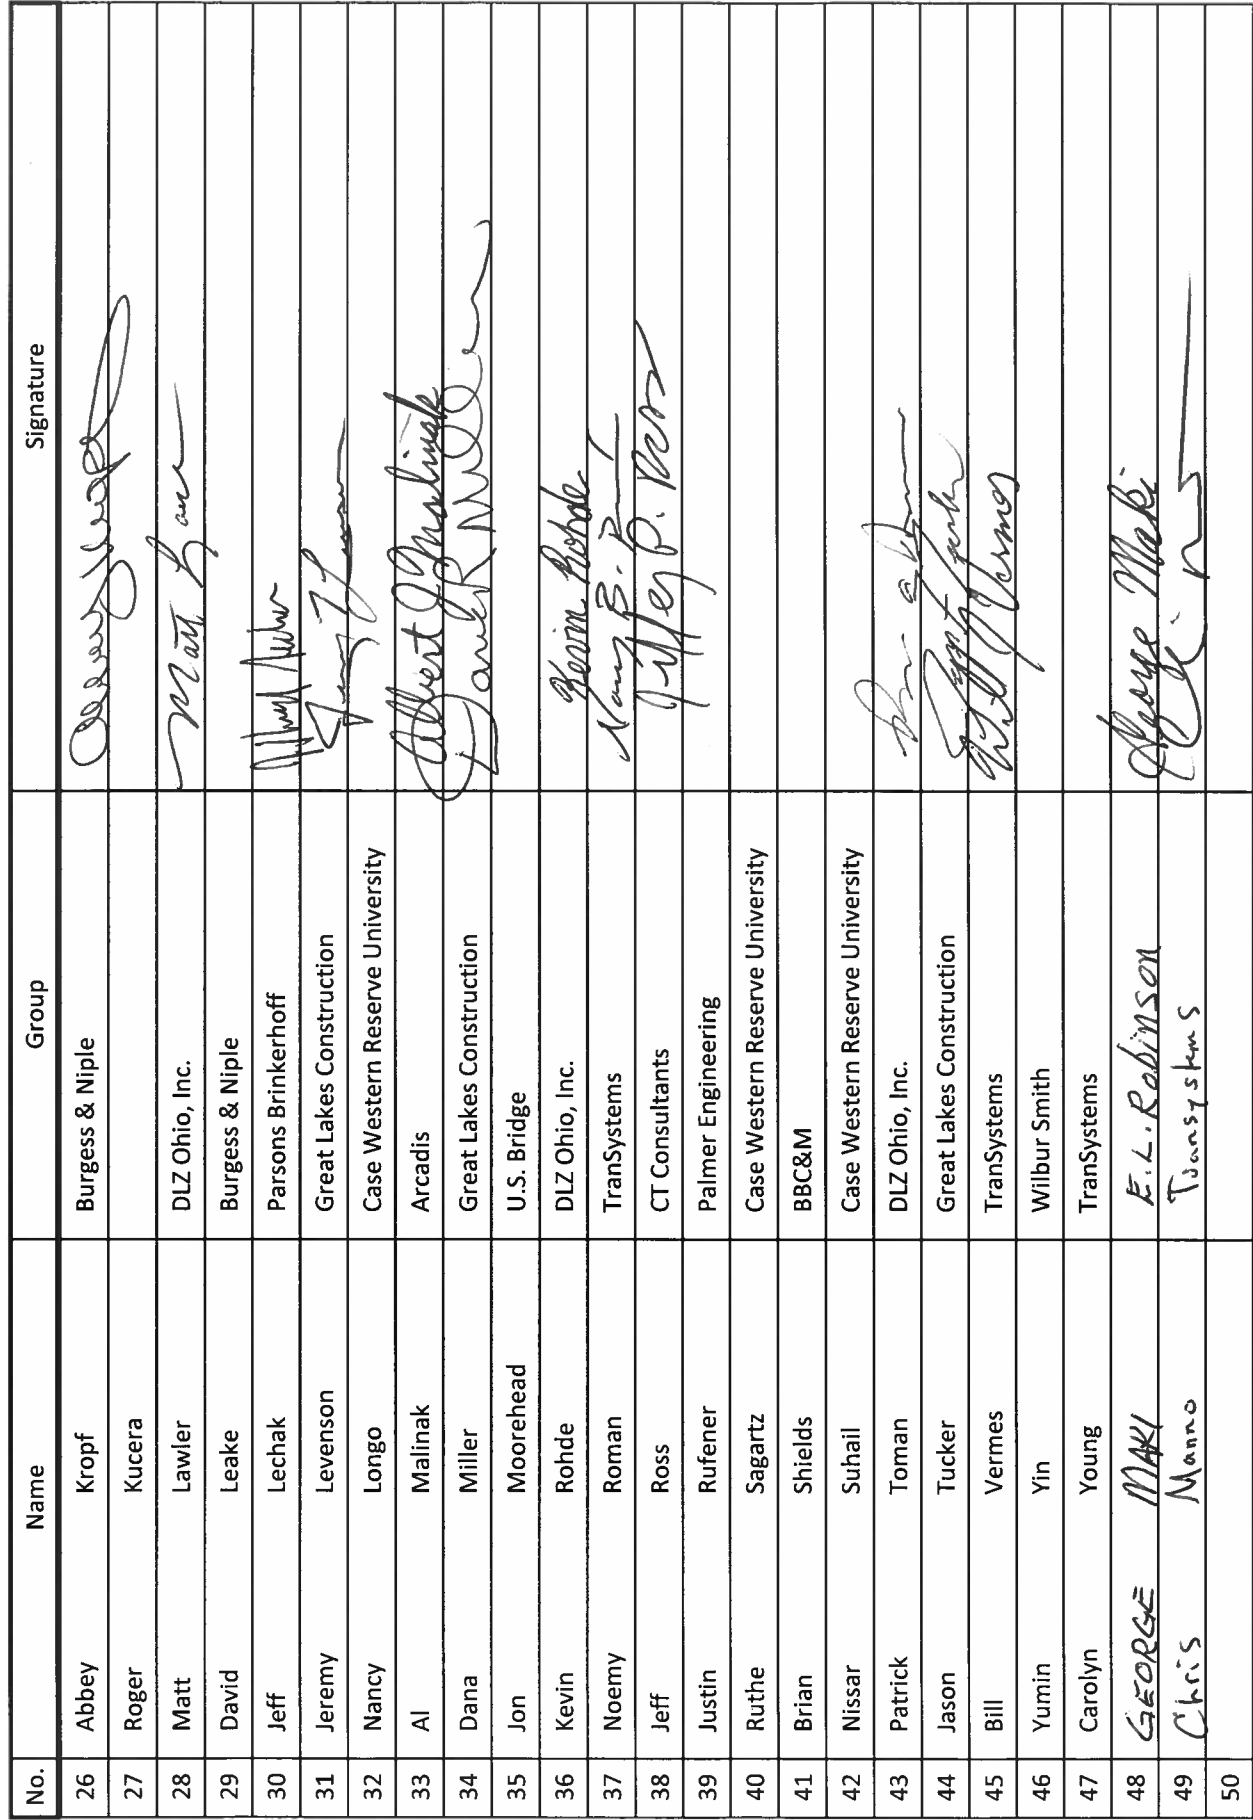 No. Name Group Signature
26 Abbey Kropf Burgess & Niple
27 Roger Kucera
28 Matt Lawler DLZ Ohio, Inc. Matt
29 David Leake Burgess & Niple
30 Jeff Lechak Parsons Brinkerhoff
31 Jeremy Levenson Great Lakes Construction
32 Nancy Longo Case Western Reserve University
33 Al Malinak Arcadis Albert J Malinak
34 Dana Miller Great Lakes Construction
35 Jon Moorehead U.S. Bridge
36 Kevin Rohde DLZ Ohio, Inc. Kevin Rohde
37 Noemy Roman TranSystems
38 Jeff Ross CT Consultants
39 Justin Rufener Palmer Engineering
40 Ruthe Sagartz Case Western Reserve University
41 Brian Shields BBC&M
42 Nissar Suhail Case Western Reserve University
43 Patrick Toman DLZ Ohio, Inc.
44 Jason Tucker Great Lakes Construction
45 Bill Vermes TranSystems Bill Vermes
46 Yumin Yin Wilbur Smith
47 Carolyn Young TranSystems
48 GEORGE MAKI E.L. Robinson George Maki
49 Chris Manno Transystems
50